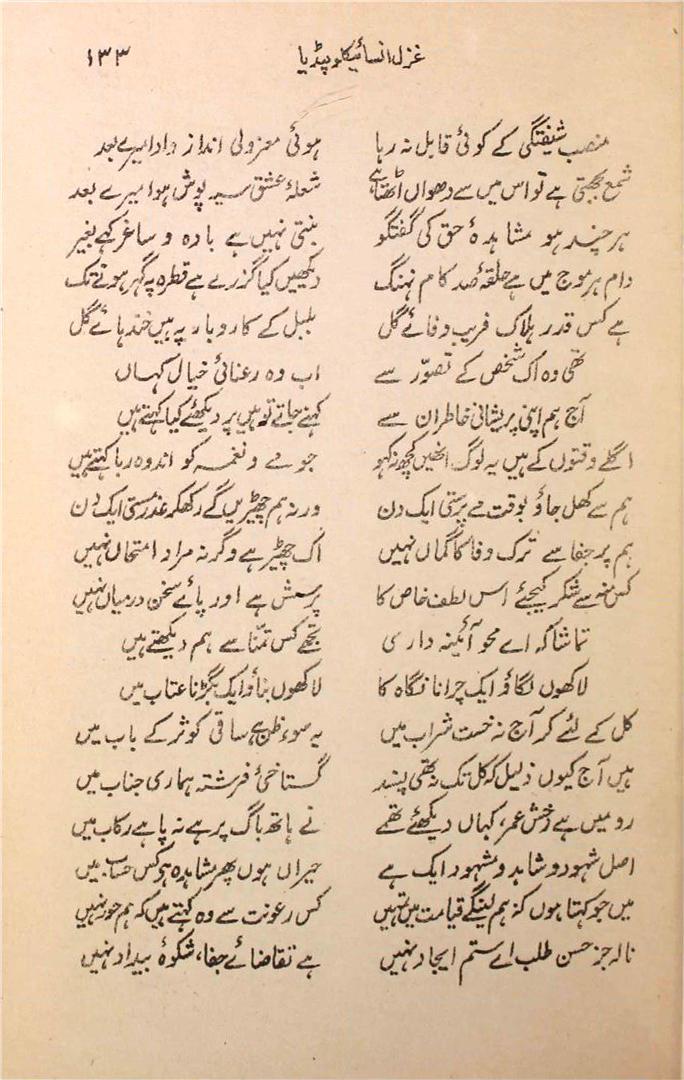 غزل انسائیکلوپیڈیا ۱۳۳
منصب شیفتگی کے کوئی قابل نہ رہا ہوئی معزولی انداز و ادا میرے بعد
شمع بجھتی ہے تو اس میں سے دھواں اٹھتا ہے شعلۂ عشق سیہ پوش ہوا میرے بعد
ہر چند ہو مشاہدۂ حق کی گفتگو بنتی نہیں ہے بادہ و ساغر کہے بغیر
دام ہر موج میں ہے حلقۂ صد کام نہنگ دیکھیں کیا گزرے ہے قطرہ پہ گہر ہوتے تک
ہے کس قدر ہلاک فریب وفائے گل بلبل کے کاروبار پہ ہیں خندہائے گل
تھی وہ اک شخص کے تصوّر سے اب وہ رعنائی خیال کہاں
آج ہم اپنی پریشانی خاطر ان سے کہنے جاتے تو ہیں پر دیکھئے کیا کہتے ہیں
اگلے وقتوں کے ہیں یہ لوگ انھیں کچھ نہ کہو جو مے و نغمہ کو اندوہ ربا کہتے ہیں
ہم سے کھل جاؤ بوقت مے پرستی ایک دن ورنہ ہم چھیڑیں گے رکھکر عذر مستی ایک دن
ہم پر جفا سے ترک وفا کا گماں نہیں اک چھیڑ ہے وگرنہ مراد امتحاں نہیں
کس منہ سے شکر کیجئے اس لطف خاص کا پرسش ہے اور پائے سخن درمیاں نہیں
تماشا کہ اے محو آئینہ داری تجھے کس تمنّا سے ہم دیکھتے ہیں
لاکھوں لگاؤ ایک چرانا نگاہ کا لاکھوں بناؤ ایک بگڑنا عتاب میں
کل کے لئے کر آج نہ خست شراب میں یہ سوء ظن ہے ساقی کوثر کے باب میں
ہیں آج کیوں ذلیل کہ کل تک نہ تھی پسند گستاخیٔ فرشتہ ہماری جناب میں
رو میں ہے رخش عمر، کہاں دیکھئے تھمے نے ہاتھ باگ پر ہے نہ پا ہے رکاب میں
اصل شہود و شاہد و مشہود ایک ہے حیراں ہوں پھر مشاہدہ ہے کس حساب میں
میں جو کہتا ہوں کہ ہم لینگے قیامت میں تمہیں کس رعونت سے وہ کہتے ہیں کہ ہم حور نہیں
نالہ جز حسن طلب اے ستم ایجاد نہیں ہے تقاضائے جفا، شکوۂ بیداد نہیں